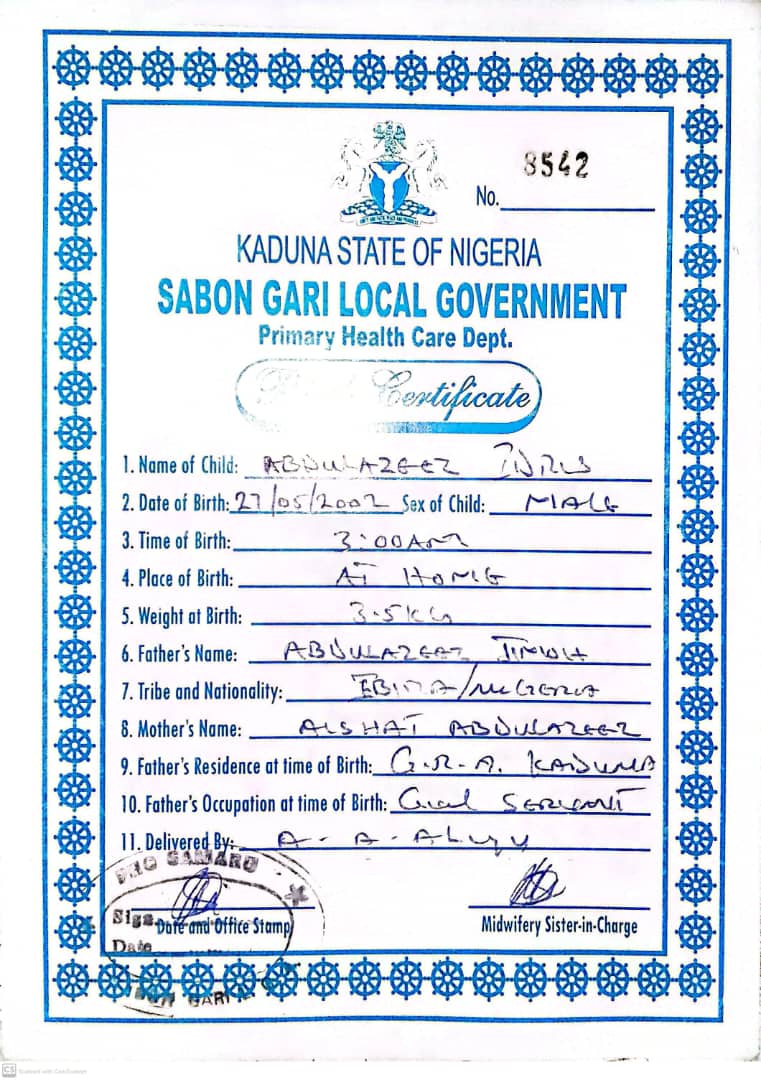 8542
No.
KADUNA STATE OF NIGERIA
SABON GARI LOCAL GOVERNMENT
Primary Health Care Dept.
Certificate
1. Name of Child: ABDULAZEEZ IDRIS
2. Date of Birth: 27/05/2002 Sex of Child: MALE
3. Time of Birth: 3:00AM
4. Place of Birth: AT HOME
5. Weight at Birth: 3.5KG
6. Father's Name: ABDULAZEEZ JIMOH
7. Tribe and Nationality: EBIRA/NIGERIA
8. Mother's Name: AISHAT ABDULAZEEZ
9. Father's Residence at time of Birth: G.R.A. KADUNA
10. Father's Occupation at time of Birth: Civil SERVANT
11. Delivered By: A. A. Aliyu
SAMARU
Sign
Date and Office Stamp
Midwifery Sister-in-Charge
Date
GARI
CS Scanned with CamScanner